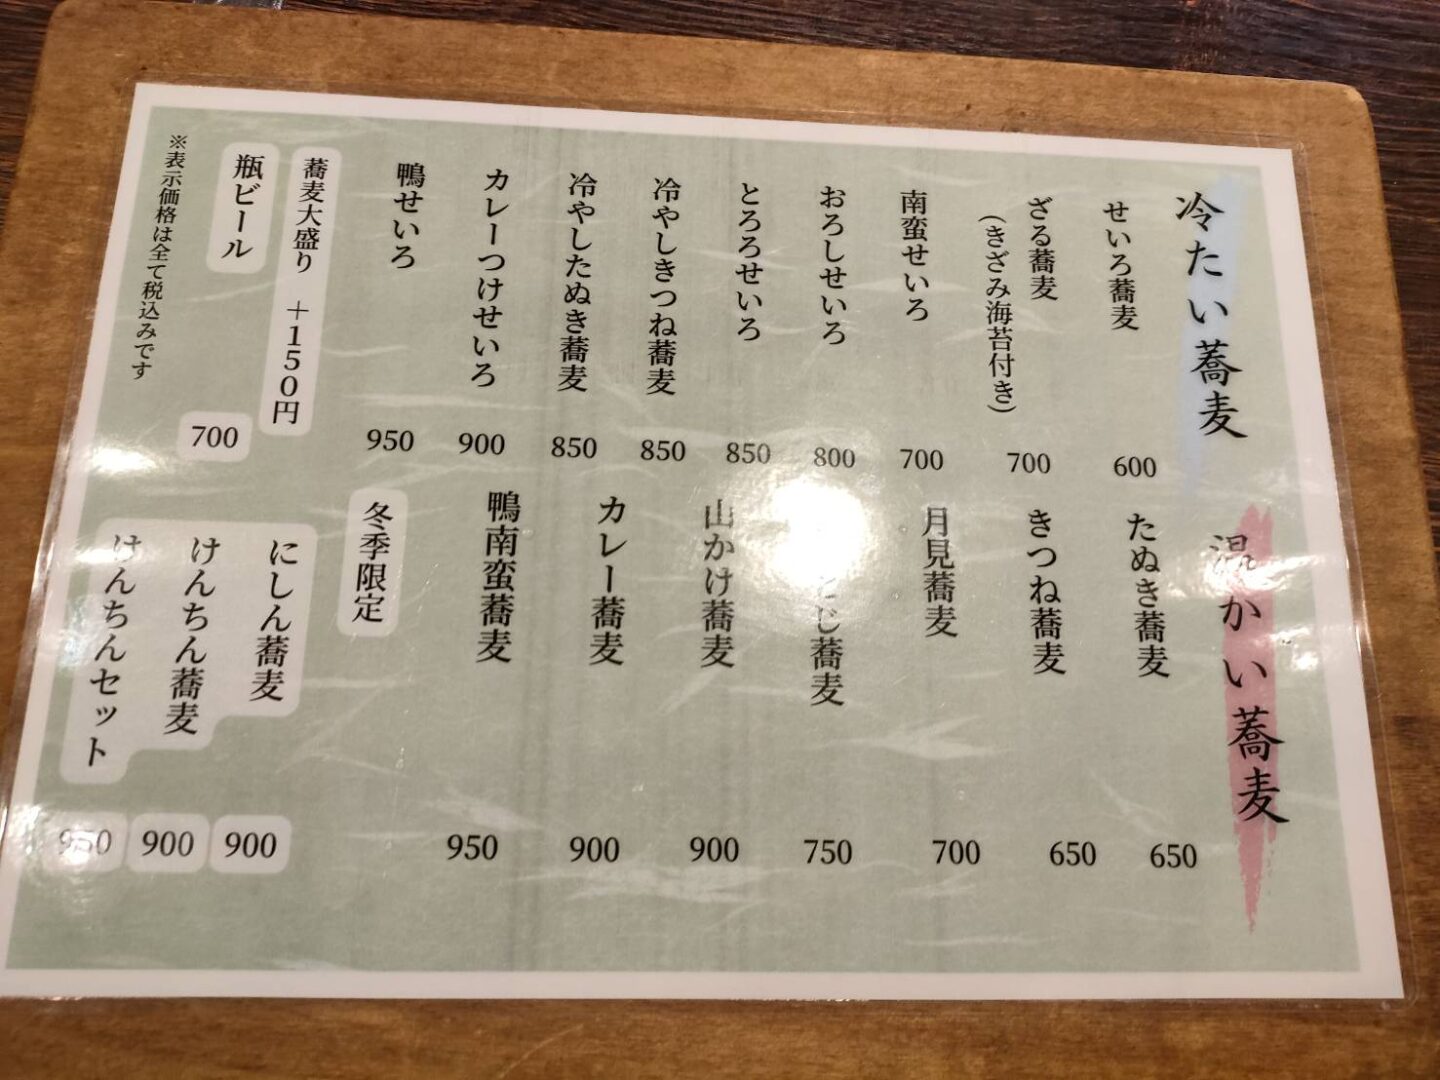 冷たい蕎麦
せいろ蕎麦 600
ざる蕎麦 700
(きざみ海苔付き)
南蛮せいろ 700
おろしせいろ 800
とろろせいろ 850
冷やしきつね蕎麦 850
冷やしたぬき蕎麦 850
カレーつけせいろ 900
鴨せいろ 950
蕎麦大盛り ＋150円
瓶ビール 700
※表示価格は全て税込みです
温かい蕎麦
たぬき蕎麦 650
きつね蕎麦 650
月見蕎麦 700
とじ蕎麦 750
山かけ蕎麦 900
カレー蕎麦 900
鴨南蛮蕎麦 950
冬季限定
にしん蕎麦 900
けんちん蕎麦 900
けんちんセット 950